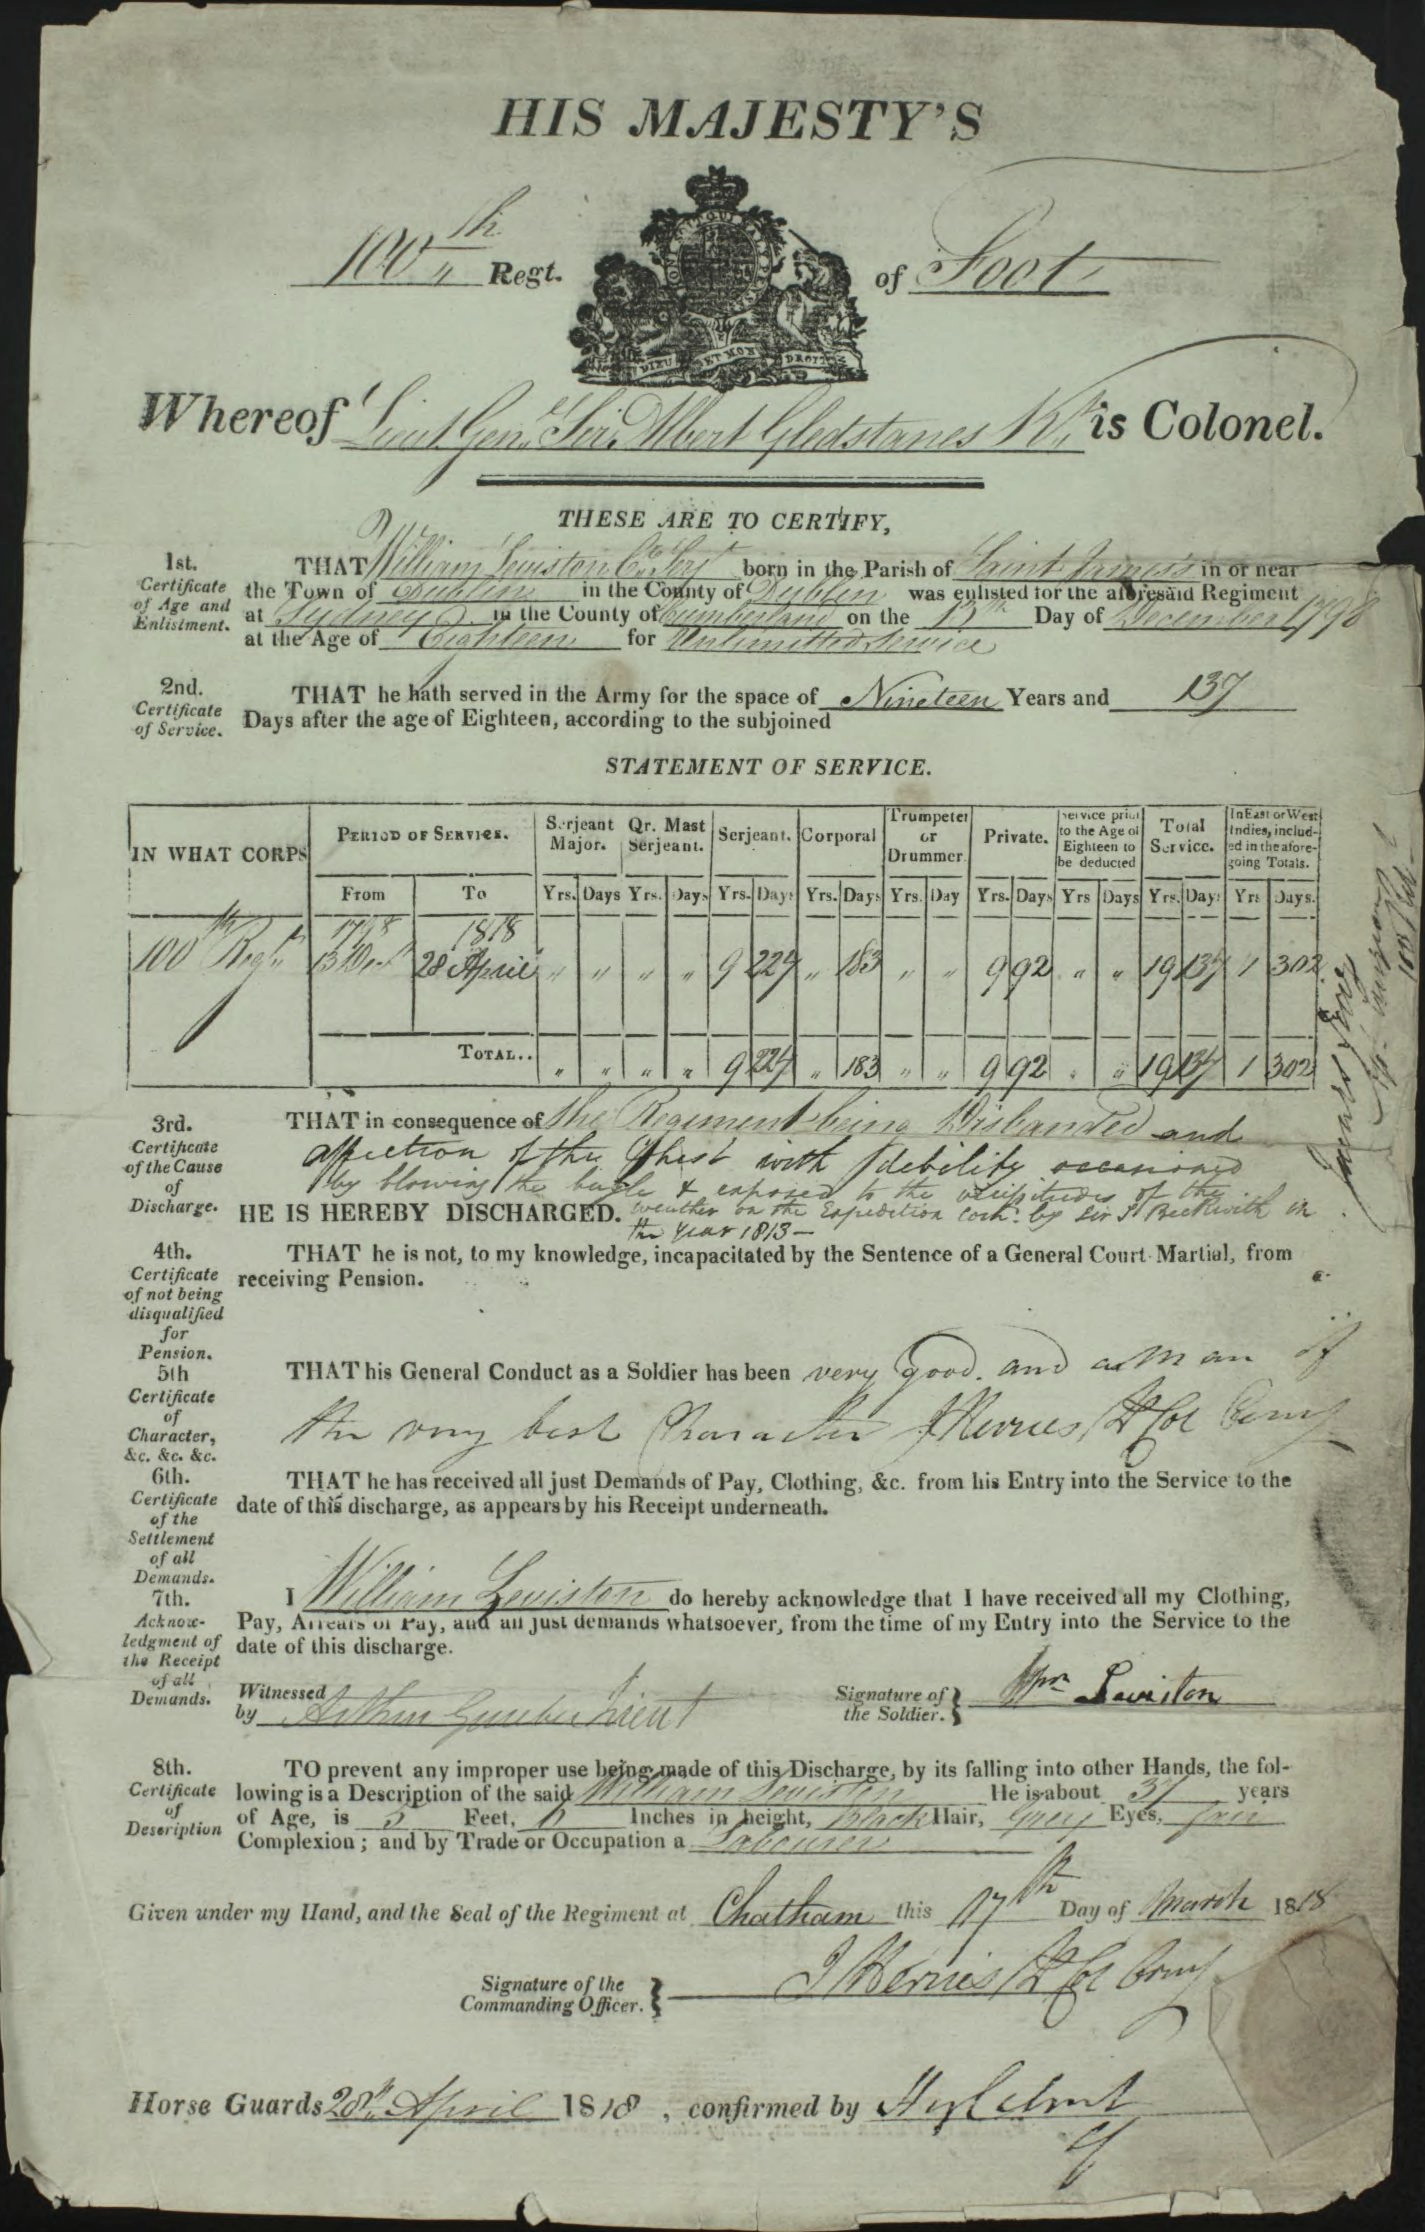 HIS MAJESTY'S
100th Regt. of Foot
DIEU ET MON DROIT
Whereof Lieut. Genl. Sir Albert Gledstanes Kt. is Colonel.
THESE ARE TO CERTIFY,
1st. Certificate of Age and Enlistment.
THAT William Leviston Cr. Serjt. born in the Parish of Saint James's in or near
the Town of Dublin in the County of Dublin was enlisted for the aforesaid Regiment
at Sydney in the County of Cumberland on the 13th Day of December 1798
at the Age of Eighteen for Unlimitted Service
2nd. Certificate of Service.
THAT he hath served in the Army for the space of Nineteen Years and 137
Days after the age of Eighteen, according to the subjoined
STATEMENT OF SERVICE.
IN WHAT CORPS PERIOD OF SERVICE. Serjeant Major. Qr. Mast Serjeant. Serjeant. Corporal Trumpeter or Drummer. Private. Service prior to the Age of Eighteen to be deducted Total Service. In East or West Indies, included in the aforegoing Totals.
From To Yrs. Days Yrs. Days Yrs. Days Yrs. Days Yrs. Day Yrs. Days Yrs Days Yrs. Days Yrs Days.
1798 1818
100th Regt. 13 Decr. 28 April " " " " 9 227 " 183 " " 9 92 " " 19 137 1 302
TOTAL.. " " " " 9 227 " 183 " " 9 92 " " 19 137 1 302
3rd. Certificate of the Cause of Discharge.
THAT in consequence of the Regiment being Disbanded and
affection of the Chest with debility occasioned
by blowing the bugle & exposed to the vicissitudes of the
HE IS HEREBY DISCHARGED. weather on the Expedition by Sir S. Beckwith in
the year 1813 —
4th. Certificate of not being disqualified for Pension.
THAT he is not, to my knowledge, incapacitated by the Sentence of a General Court Martial, from
receiving Pension.
5th Certificate of Character, &c. &c. &c.
THAT his General Conduct as a Soldier has been very good. and a Man of
the very best Character J Herries Lt Col Comg
6th. Certificate of the Settlement of all Demands.
THAT he has received all just Demands of Pay, Clothing, &c. from his Entry into the Service to the
date of this discharge, as appears by his Receipt underneath.
7th. Acknowledgment of the Receipt of all Demands.
I William Leviston do hereby acknowledge that I have received all my Clothing,
Pay, Arrears of Pay, and all just demands whatsoever, from the time of my Entry into the Service to the
date of this discharge.
Witnessed by Arthur Lieut Signature of the Soldier. Wm Leviston
8th. Certificate of Description
TO prevent any improper use being made of this Discharge, by its falling into other Hands, the fol-
lowing is a Description of the said William Leviston He is about 37 years
of Age, is 5 Feet, Inches in height, Black Hair, Grey Eyes, fair
Complexion; and by Trade or Occupation a Labourer
Given under my Hand, and the Seal of the Regiment at Chatham this 17th Day of March 1818
Signature of the Commanding Officer. J Herries Lt Col Comg
Horse Guards 28th April 1818, confirmed by